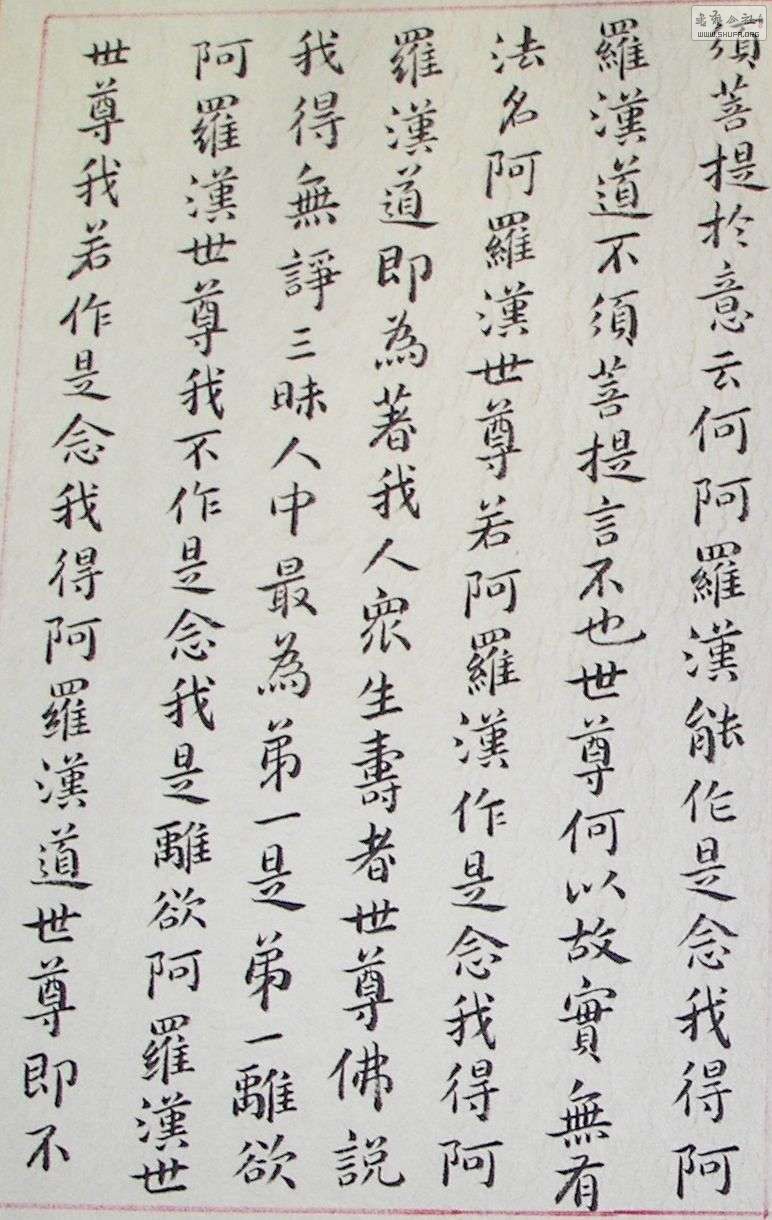 須菩提於意云何阿羅漢能作是念我得阿
羅漢道不須菩提言不也世尊何以故實無有
法名阿羅漢世尊若阿羅漢作是念我得阿
羅漢道即為著我人眾生壽者世尊佛説
我得無諍三昧人中最為第一是第一離欲
阿羅漢世尊我不作是念我是離欲阿羅漢世
世尊我若作是念我得阿羅漢道世尊即不
WWW.SHUFA.ORG